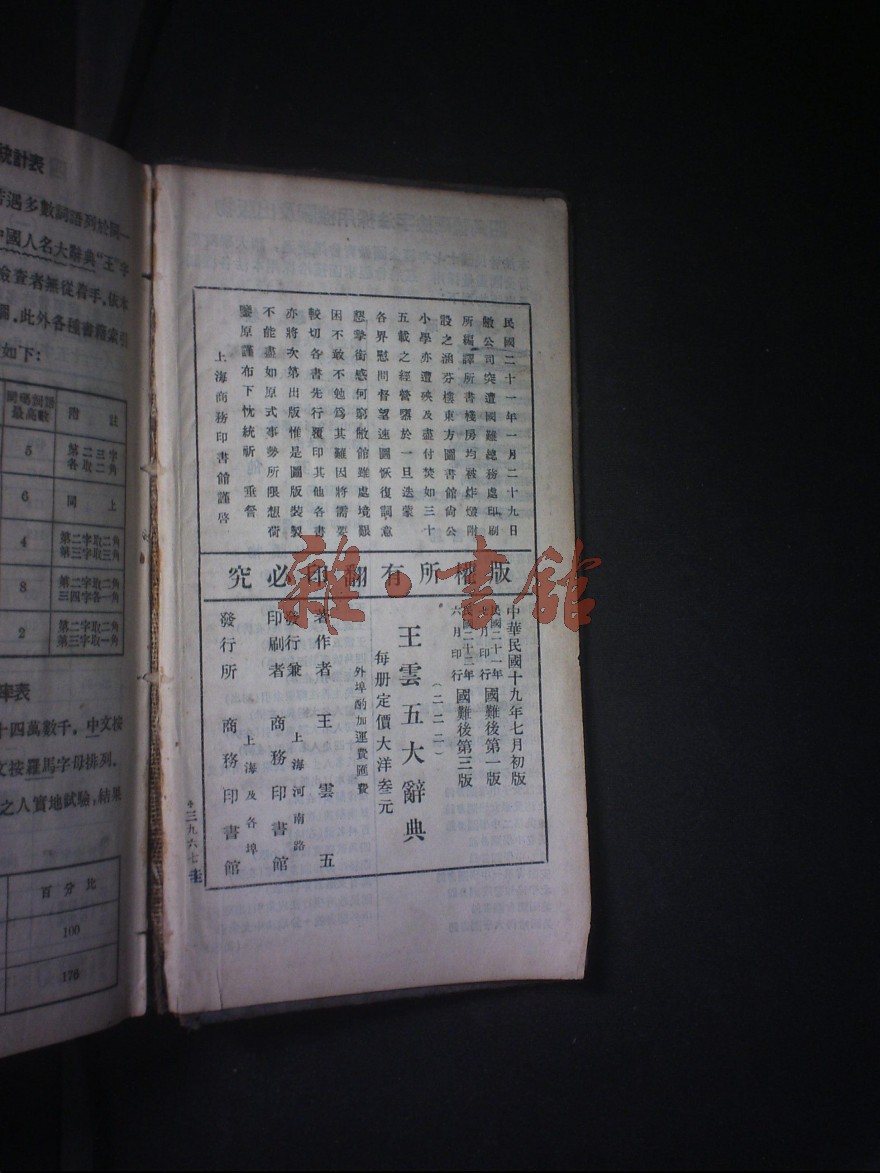 民國二十一年一月二十九日
敝公司突遭國難總務處印刷
所編譯所書棧房均被炸燬附
設之涵芬樓東方圖書館尚公
小學亦遭殃及盡付焚如三十
五載之經營隳於一旦迭蒙
各界慰問督望速圖恢復詞意
懇摯銜感何窮敝館雖處境艱
困不敢不勉爲其難因將需要
較切各書先行覆印其他各書
亦將次第出版惟是圖版裝製
不能盡如原式事勢所限想荷
鑒原謹布下忱統祈 垂詧
上海商務印書館謹啓
版權所有翻印必究
中華民國十九年七月初版
民國二十一年 月印行 國難後第一版
民國二十二年六月印行 國難後第三版
(二二二)
王雲五大辭典
每册定價大洋叁元
外埠酌加運費匯費
著作者 王雲五
發行兼印刷者 上海河南路 商務印書館
發行所 上海及各埠 商務印書館
三九六七
統計表
若遇多數詞語列於同一
中國人名大辭典"王"字
檢查者無從着手,依本
此外各種書籍索引
如下:
同碼詞語最高數 附註
5 第二三字各取二角
6 同上
4 第二字取二角第三字取三角
8 第二字取二角三四字各一角
2 第二字取二角第三字取一角
率表
十四萬數千,中文按
文按羅馬字母排列.
之人實地試驗,結果
百分比
100
176
雜·書館